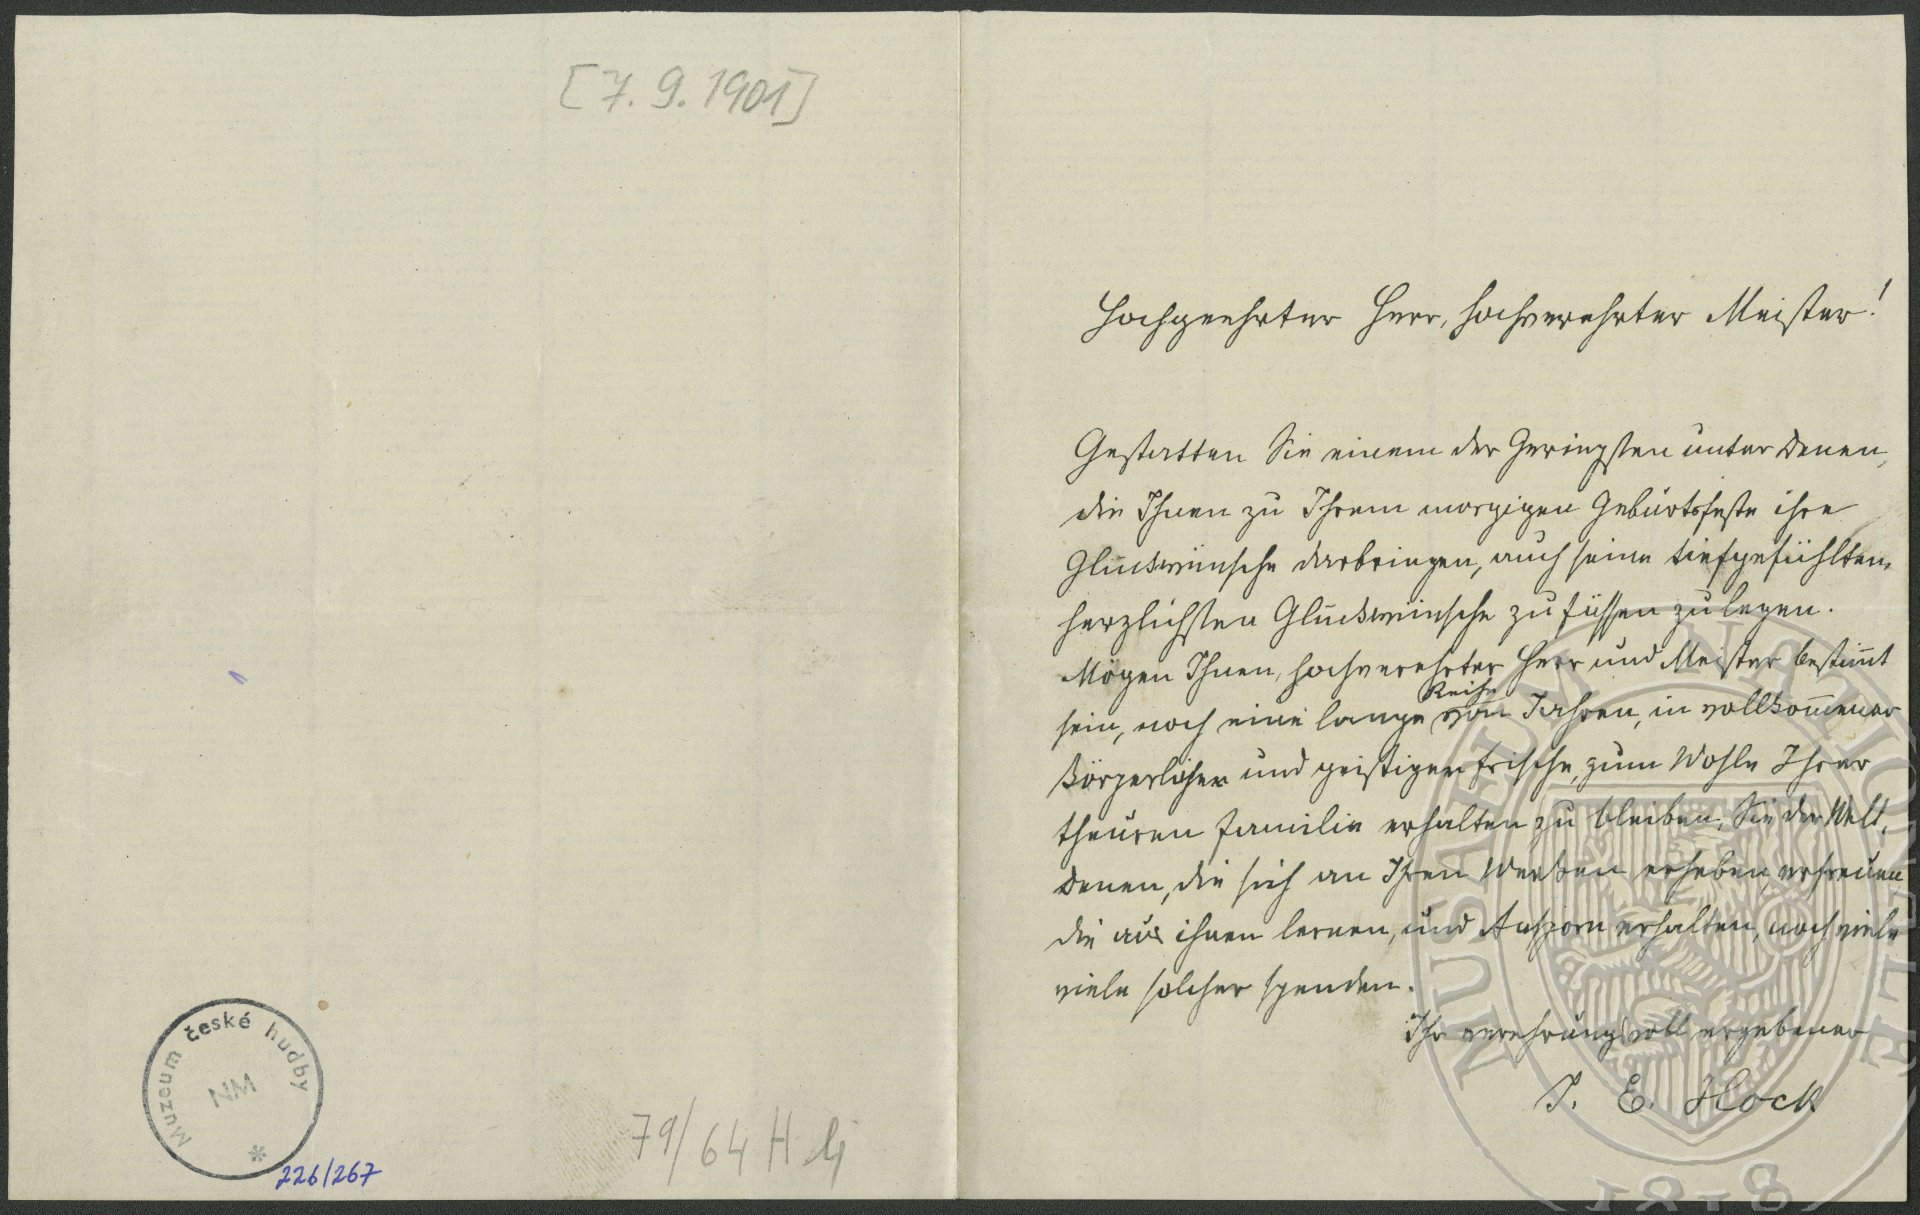 [7. 9. 1901]
Muzeum české hudby
NM
*
226/267
79/64 H
Hochgeehrter Herr, hochverehrter Meister!
Gestatten Sie einem der Geringsten unter Denen,
die Ihnen zu Ihrem morgigen Geburtsfeste ihre
Glückwünsche darbringen, auch seine tiefgefühlten,
herzlichsten Glückwünsche zu Füssen zu legen.
Mögen Ihnen, hochverehrter Herr und Meister bestim̅t
sein, noch eine lange Reihe von Jahren, in vollkom̅ener
körperlicher und geistiger Frische, zum Wohle Ihrer
theuren Familie erhalten zu bleiben, Sie der Welt,
Denen, die sich an Ihren Werken erheben, erfreuen,
die aus ihnen lernen, und Ansporn erhalten, noch viele
viele solcher spenden.
Ihr verehrungsvoll ergebener
J. E. Hock
MUSAEUM NATIONALE
1818